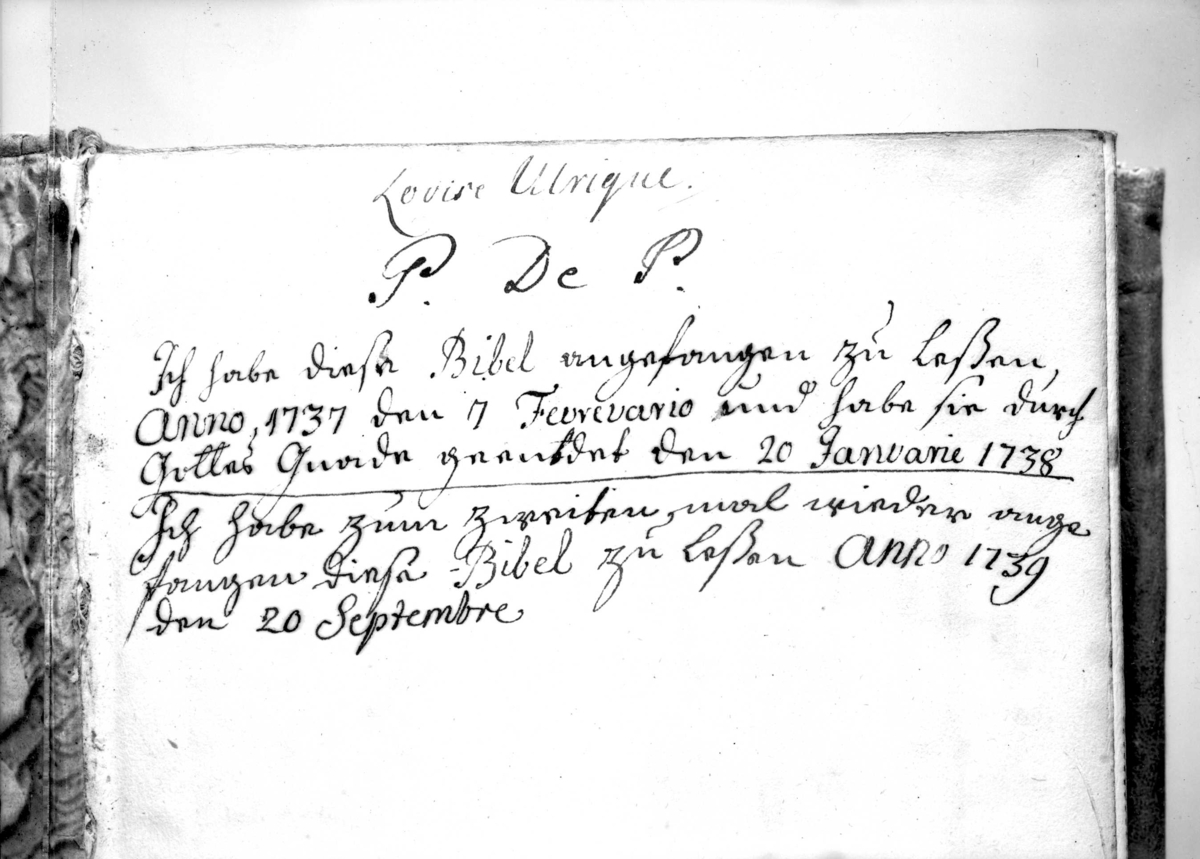 Louise Ulrique.
P. De P.
Ich habe diese Bibel angefangen zu leßen,
Anno, 1737 den 7 Fevrevario und habe sie durch
Gottes Gnade geentdet den 20 Janvarie 1738
Ich habe zum zweiten mal wieder ange
fangen diese Bibel zu leßen Anno 1739
den 20 Septembre